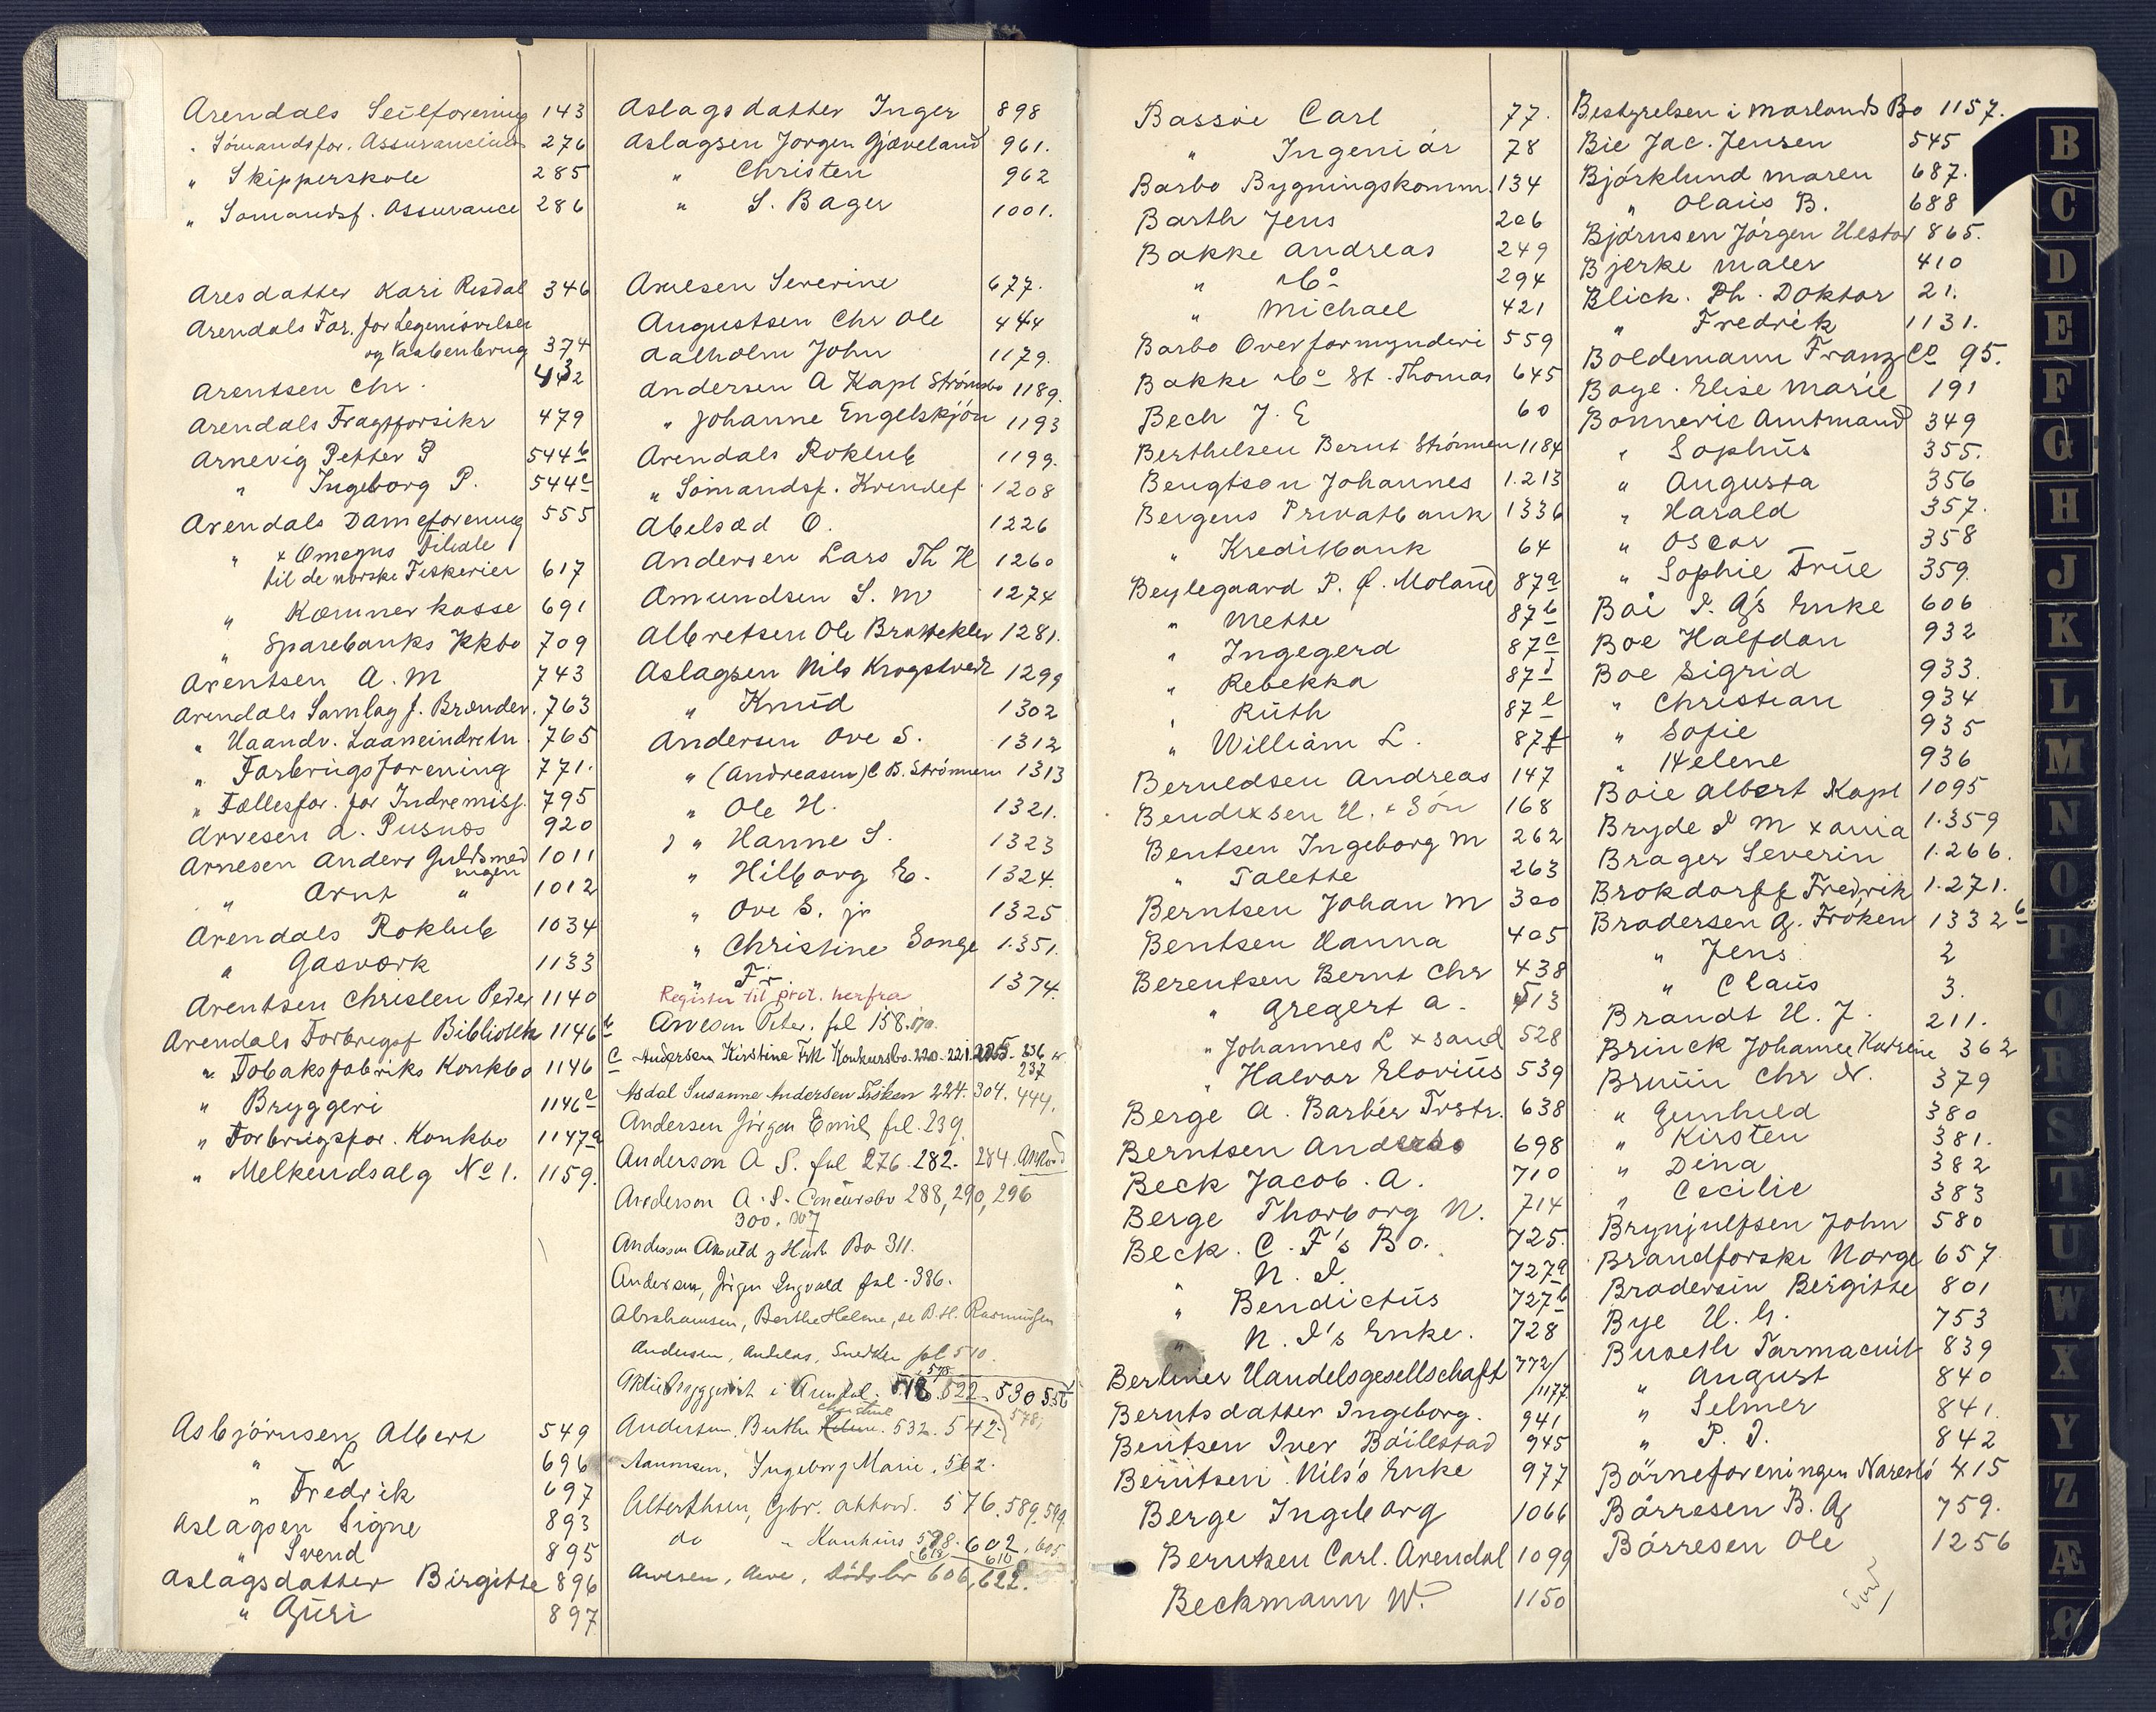 Arendals Seilforening 143
" Sømandsfor. Assurance 276
" Skipperskole 285
" Sømandsf. Assurance 286
Aresdatter Kari Resdal 346
Arendals For. for Legemsøvelser
og Vaabenbrug 374
Arentsen Chr.
Arendals Fragtforsikr 479
Arnevig Petter P 544b
" Ingeborg P. 544c
Arendals Dameforening 555
" & Omegns Filiale
til de norske Fiskerier 617
" Kæmnerkasse 691
" Sparebanks Kkbo 709
Arentsen A. M 743
Arendals Samlag f. Brænder. 763
" Haandv. Laaneindretn. 765
" Forbrugsforening 771.
" Fællesfor. for Indremiss. 795
Arvesen A. Pusnæs 920
Arnesen Anders Guldsmed
engen 1011
" Arnt " 1012
Arendals Roklub 1034
" Gasværk 1133
Arentsen Christen Peder 1140
Arendals Forbrugsf Bibliothek 1146b
" Tobaksfabriks Konkbo 1146 c
" Bryggeri 1146e
" Forbrugsfor. Konkbo 1147a
" Melkeudsalg No 1. 1159.
Asbjørnsen Albert 549
" L 696
" Fredrik 697
Aslagsen Signe 893
" Svend 895
Aslagsdatter Birgitte 896
" Guri 897
Aslagsdatter Inger 898
Aslagsen Jørgen Gjøveland 961.
" Christen 962
" S. Bager 1001.
Severine 677.
Augustsen Chr Ole 444
Aalholm John 1179.
Andersen A Kapt Strømsbo 1189.
" Johanne Engelskjøn 1193
Arendals Roklub 1199.
" Sømandsf. Kvindef 1208
Abelsæd O. 1226
Andersen Lars Th H 1260
Amundsen S. M 1274
Albretsen Ole Brattekler 1281.
Aslagsen Nils Krogstvedt 1299
" Knud 1302
Andersen Ove S. 1312
" (Andreasen) C B. Strømmen 1313
" Ole H. 1321.
" Hanne S. 1323
" Hilborg E. 1324.
" Ove S. jr 1325
" Christine Songe 1351.
" Fr 1374.
Register til prot. herfra
Arvesen Peter. fol 158. 170.
Andersen Kirstine Frk Konkursbo. 220. 221. 225. 236
237
Asdal Susanne Andersen Frøken 224. 304. 444.
Andersen Jørgen Emil fol. 239.
Anderson A S. fol 276. 282. 284. Akkord
Anderson A. S. Concursbo 288, 290, 296
300. 307
Anderson Arnold & Hust Bo 311.
Andersen, Jørgen Ingvald fol. 386.
Abrahamsen, Berthe Helene, se B. H. Rasmussen
Andersen, Andreas, Snedker fol 510.
Aktiebryggeriet i Arendal. 518 522. 530 556
575
Christine
Andersen, Berthe 532. 542. 578
Aanonsen, Ingeborg Marie, 562.
Alterthum, Gbr. akkord. 576. 589. 599
do " Konkurs 598. 602. 605
618 610
Arvesen, Arve, Dødsbo 606, 622.
Bassøe Carl 77.
" Ingeniør 78
Barbo Bygningskomm. 134
Barth Jens 206
Bakke Andreas 249
" & Co 294
" Michael 421
Barbo Overformynderi 559
Bakke & Co St. Thomas 645
Bech J. E 60
Berthelsen Bernt Strømmen 1184
Bengtson Johannes 1213
Bergens Privatbank 1336
" Kreditbank 64
Beylegaard P. F. Moland 87a
" Mette 87b
" Ingegerd 87c
" Rebekka 87d
" Ruth 87e
" William L. 87f
Berntsen Andreas 147
Bendixsen H. & Søn 168
Bentsen Ingeborg M 262
" Talette 263
Berntsen Johan M 300
Bentsen Hanna 405
Berentsen Bernt Chr 438
" Gregert A. 513
" Johannes L x sand 528
" Halvor Elovius 539
Berge A. Barbér Trstr. 638
Berntsen Anders 698
Beck Jacob. A. 710
Berge Thorborg N. 714
Beck. C. F's Bo. 725.
" N. I. 727a
" Bendictus 727b
" N. I's Enke. 728
Berliner Handelsgesellschaft 772/
/1177
Berntsdatter Ingeborg. 941
Bentsen Iver Bøilestad 945
Berntsen Nils's Enke 977
Berge Ingeborg 1066
Berntsen Carl. Arendal 1099
Beckmann W. 1150
Bestyrelsen i Marlands Bo 1157.
Bie Jac. Jensen 545
Bjørklund Maren 687.
" Olaus B. 688
Bjørnsen Jørgen Uestøl 865.
Bjerke Maler 410
Blick. Ph. Doktor 21.
" Fredrik 1131.
Boldemann Franz Co 95.
Boge. Elise Marie 191
Bonnevie Amtmand 349
" Sophus 355.
" Augusta 356
" Harald 357.
" Oscar 358
" Sophie Frue 359.
Boe P. A's Enke 606
Boe Halfdan 932
Boe Sigrid 933.
" Christian 934
" Sofie 935
" Helene 936
Boie Albert Kapt 1095
Bryde I M x ania 1359
Brager Severin 1266.
Brokdorff Fredrik 1271.
Brodersen G. Frøken 1332b
" Jens 2
" Claus 3.
Brandt H. J. 211.
Brinck Johanne Katrine 362
Bruun Chr N. 379
" Gunhild 380
" Kirsten 381.
" Dina 382
" Cecilie 383
Brynjulfsen John 580
Brandforsikr Norge 657
Brodersen Bergitte 801
Bye H. G. 753
Buseth Farmaceut 839
" August 840
" Selmer 841.
" P. I. 842
Børneforeningen Narestø 415
Børresen B. G 759.
Børresen Ole 1256
B
C
D
E
F
G
H
J
K
L
M
N
O
P
Q
R
S
T
U
W
X
Y
Z
Æ
Ø